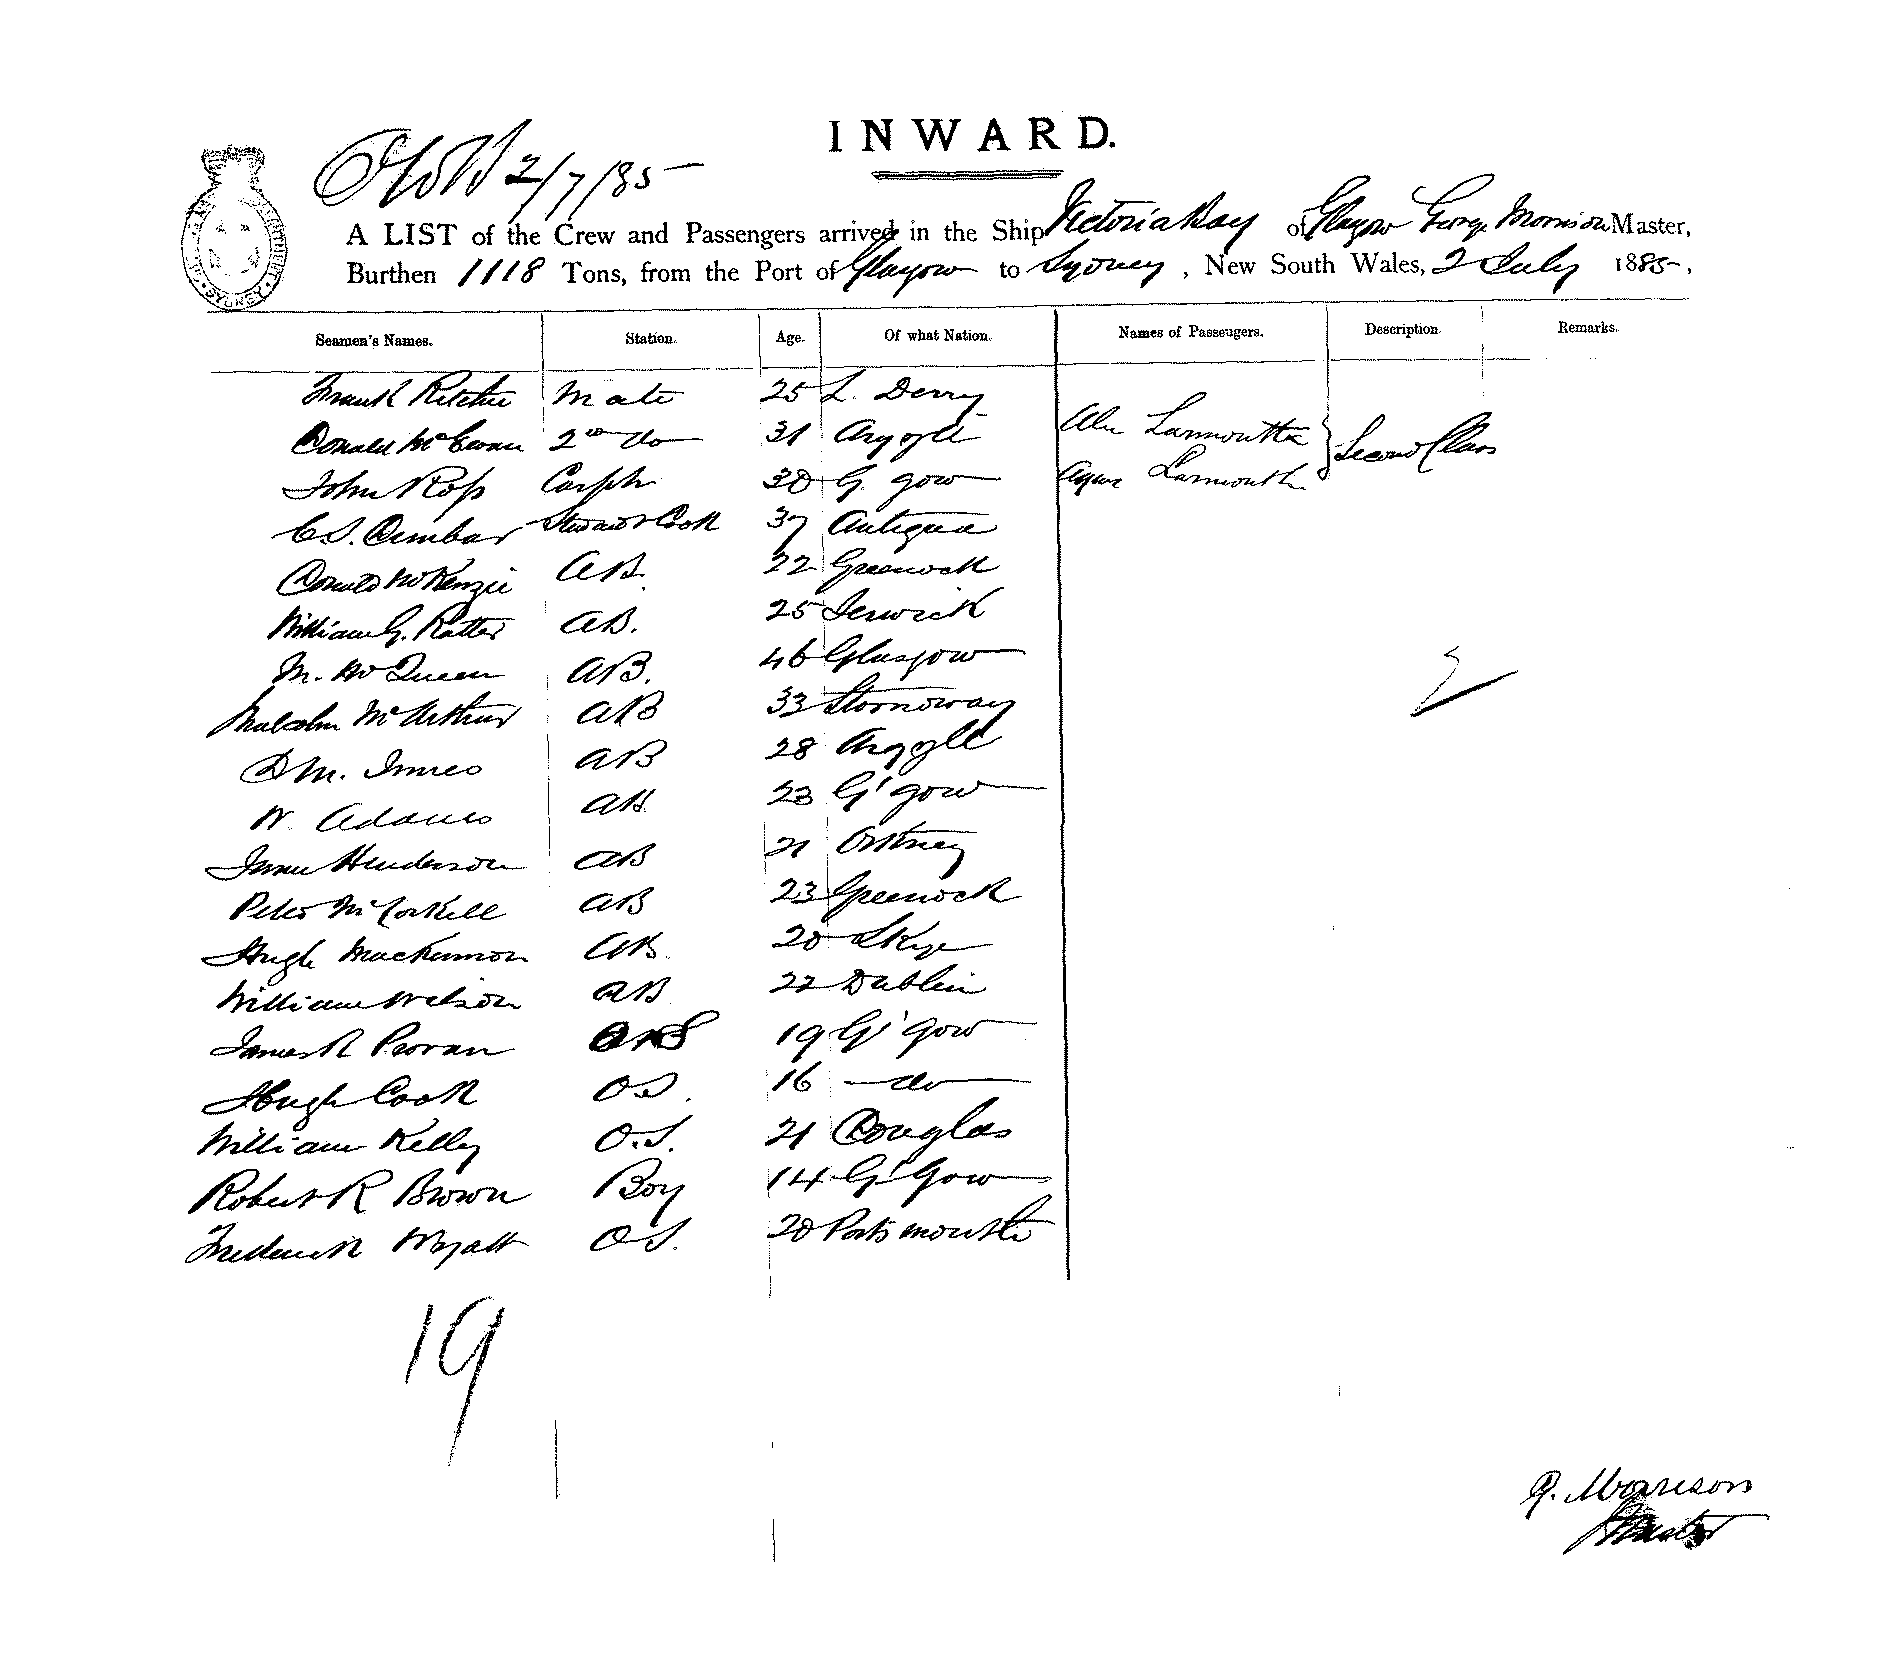 INWARD.
2/7/85
A LIST of the Crew and Passengers arrived in the Ship Victoria Bay of Glasgow George Morrison Master,
Burthen 1118 Tons, from the Port of Glasgow to Sydney, New South Wales, 2 July 1885,
Seamen's Names. Station. Age. Of what Nation. Names of Passengers. Description. Remarks.
Frank Ritchie Mate 25 L. Derry
Donald McEwan 2nd do 31 Argyle Larmouth
John Ross 30 G. gow Agnes Larmouth } Second Class
C S. Dunbar Steward & Cook 37 Antigua
Donald McKenzie AB. 22 Greenock
William G. Ratter AB. 25 Lerwick
M. McQueen AB. 46 Glasgow
Malcolm McArthur AB 33 Stornoway
D M. Innes AB 28 Argyle
W. Adams AB. 23 G'gow
James Henderson AB 21 Orkney
Peter McCorkell AB 23 Greenock
Hugh Mackinnon AB. 20 Skye
William Wilson AB 22 Dublin
James R Provan OS 19 G'gow
Hugh Cook OS. 16 do
William Kelly O.S. 21 Douglas
Robert R Brown Boy 14 G'Gow
Frederick Wyatt OS. 20 Portsmouth
2
19
G. Morrison
Master
SYDNEY